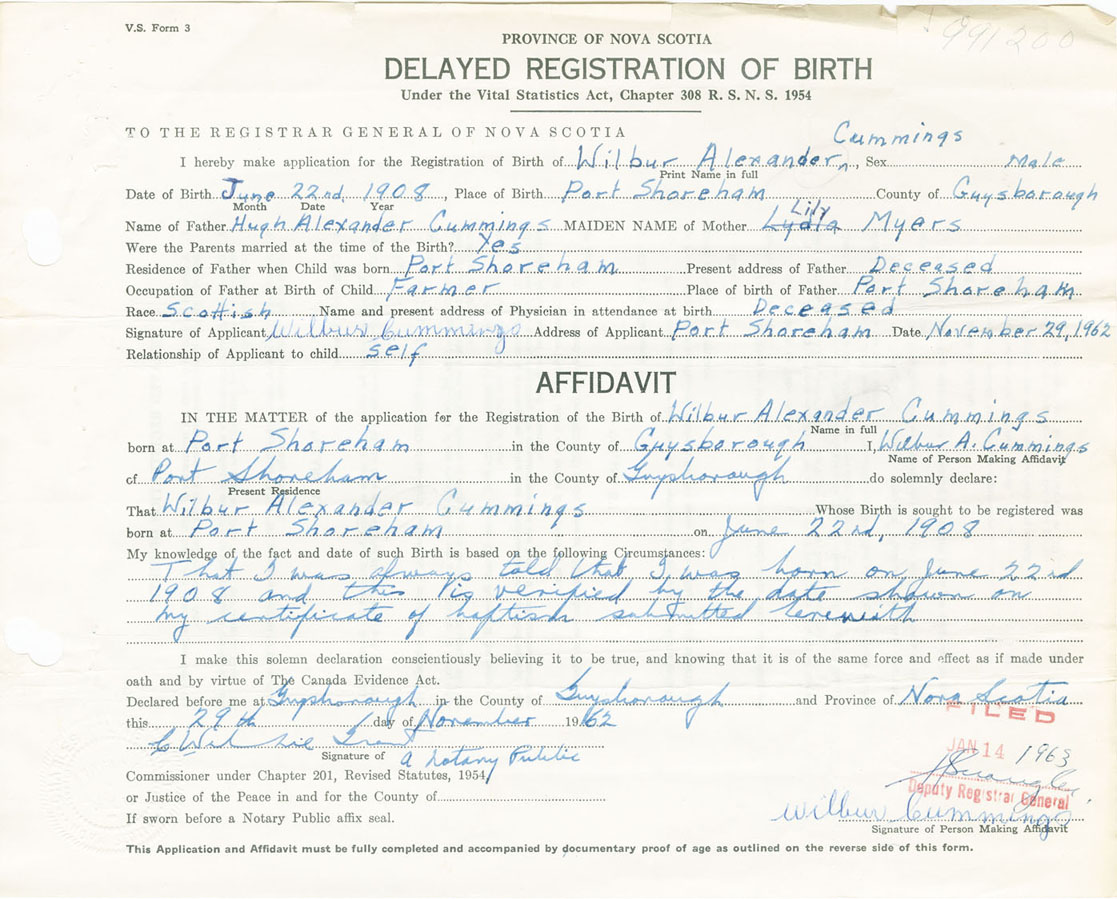 V.S. Form 3
991200
PROVINCE OF NOVA SCOTIA
DELAYED REGISTRATION OF BIRTH
Under the Vital Statistics Act, Chapter 308 R. S. N. S. 1954
TO THE REGISTRAR GENERAL OF NOVA SCOTIA
Cummings
I hereby make application for the Registration of Birth of Wilbur Alexander, Sex Male
Print Name in full
Date of Birth June 22nd, 1908, Place of Birth Port Shoreham County of Guysborough
Month Date Year
Lily
Name of Father Hugh Alexander Cummings MAIDEN NAME of Mother Lydia Myers
Were the Parents married at the time of the Birth? Yes
Residence of Father when Child was born Port Shoreham Present address of Father Deceased
Occupation of Father at Birth of Child Farmer Place of birth of Father Port Shoreham
Race Scottish Name and present address of Physician in attendance at birth Deceased
Signature of Applicant Wilbur Cummings Address of Applicant Port Shoreham Date November 29, 1962
Relationship of Applicant to child self
AFFIDAVIT
IN THE MATTER of the application for the Registration of the Birth of Wilbur Alexander Cummings
Name in full
born at Port Shoreham in the County of Guysborough I, Wilbur A. Cummings
Name of Person Making Affidavit
of Port Shoreham in the County of Guysborough do solemnly declare:
Present Residence
That Wilbur Alexander Cummings Whose Birth is sought to be registered was
born at Port Shoreham on June 22nd, 1908
My knowledge of the fact and date of such Birth is based on the following Circumstances:
That I was always told that I was born on June 22nd
1908 and this is verified by the date shown on
my certificate of baptism submitted herewith
I make this solemn declaration conscientiously believing it to be true, and knowing that it is of the same force and effect as if made under
oath and by virtue of The Canada Evidence Act.
Declared before me at Guysborough in the County of Guysborough and Province of Nova Scotia
FILED
this 29th day of November 1962
JAN 14 1963
Signature of a Notary Public
Commissioner under Chapter 201, Revised Statutes, 1954,
Deputy Registrar General
or Justice of the Peace in and for the County of
Wilbur Cummings
If sworn before a Notary Public affix seal.
Signature of Person Making Affidavit
This Application and Affidavit must be fully completed and accompanied by documentary proof of age as outlined on the reverse side of this form.